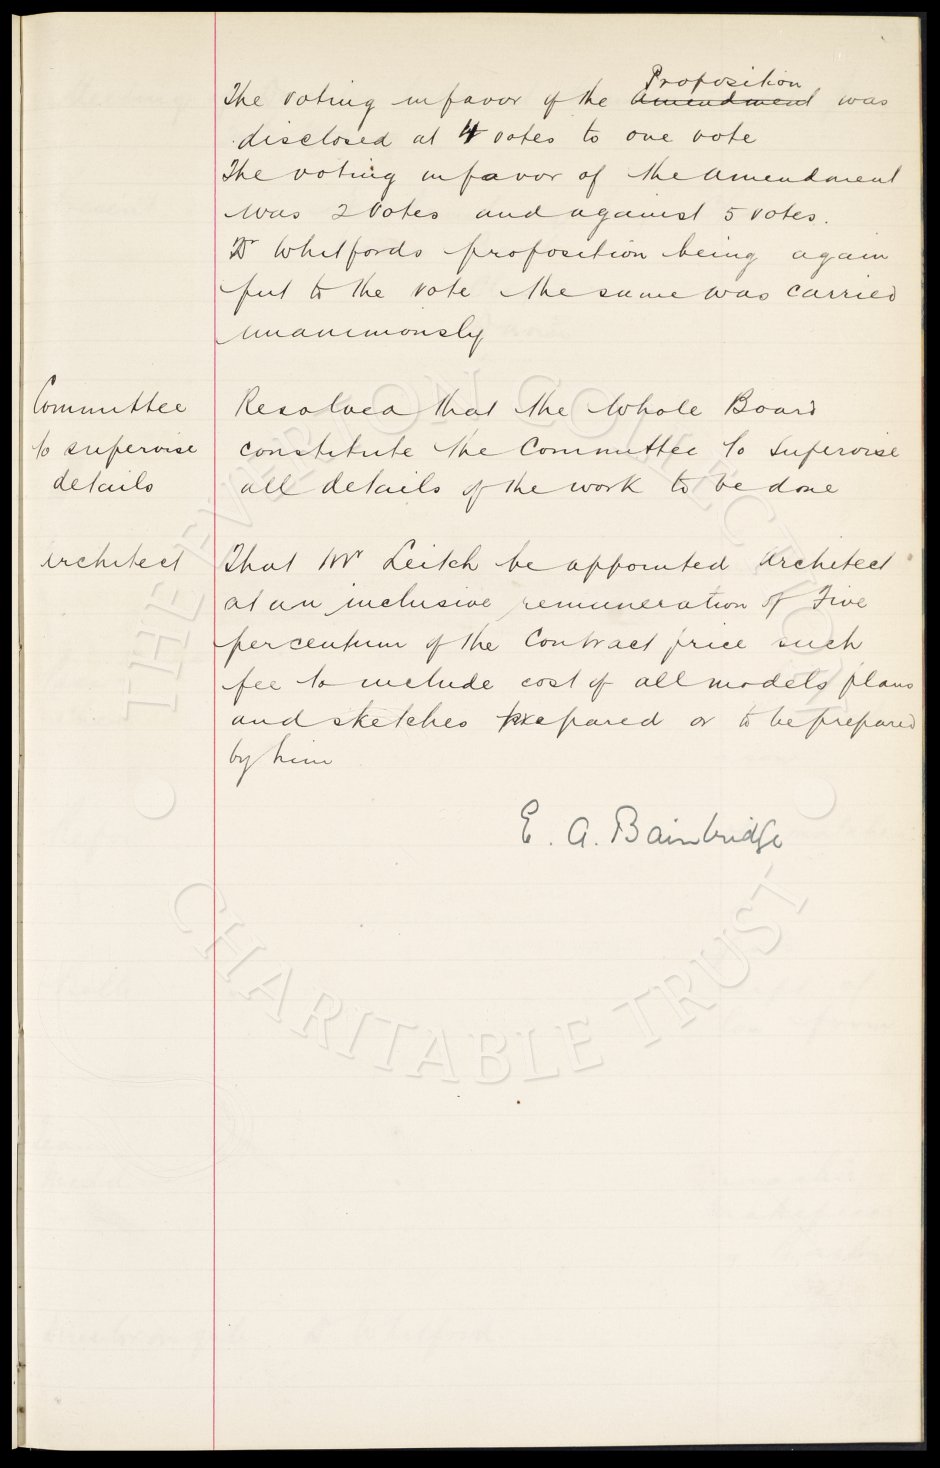 Proposition
The voting in favor of the Amendment was
disclosed at 4 votes to one vote
The voting in favor of the Amendment
was 2 votes and against 5 votes.
Dr Whitfords proposition being again
put to the vote the same was carried
unanimously
Committee
to supervise
details
Resolved that the Whole Board
constitute the Committee to Supervise
all details of the work to be done
architect
That Mr Leitch be appointed Architect
at an inclusive remuneration of Five
percentum of the Contract price such
fee to include cost of all models plans
and sketches prepared or to be prepared
by him
E. A. Bainbridge
THE EVERTON COLLECTION
CHARITABLE TRUST